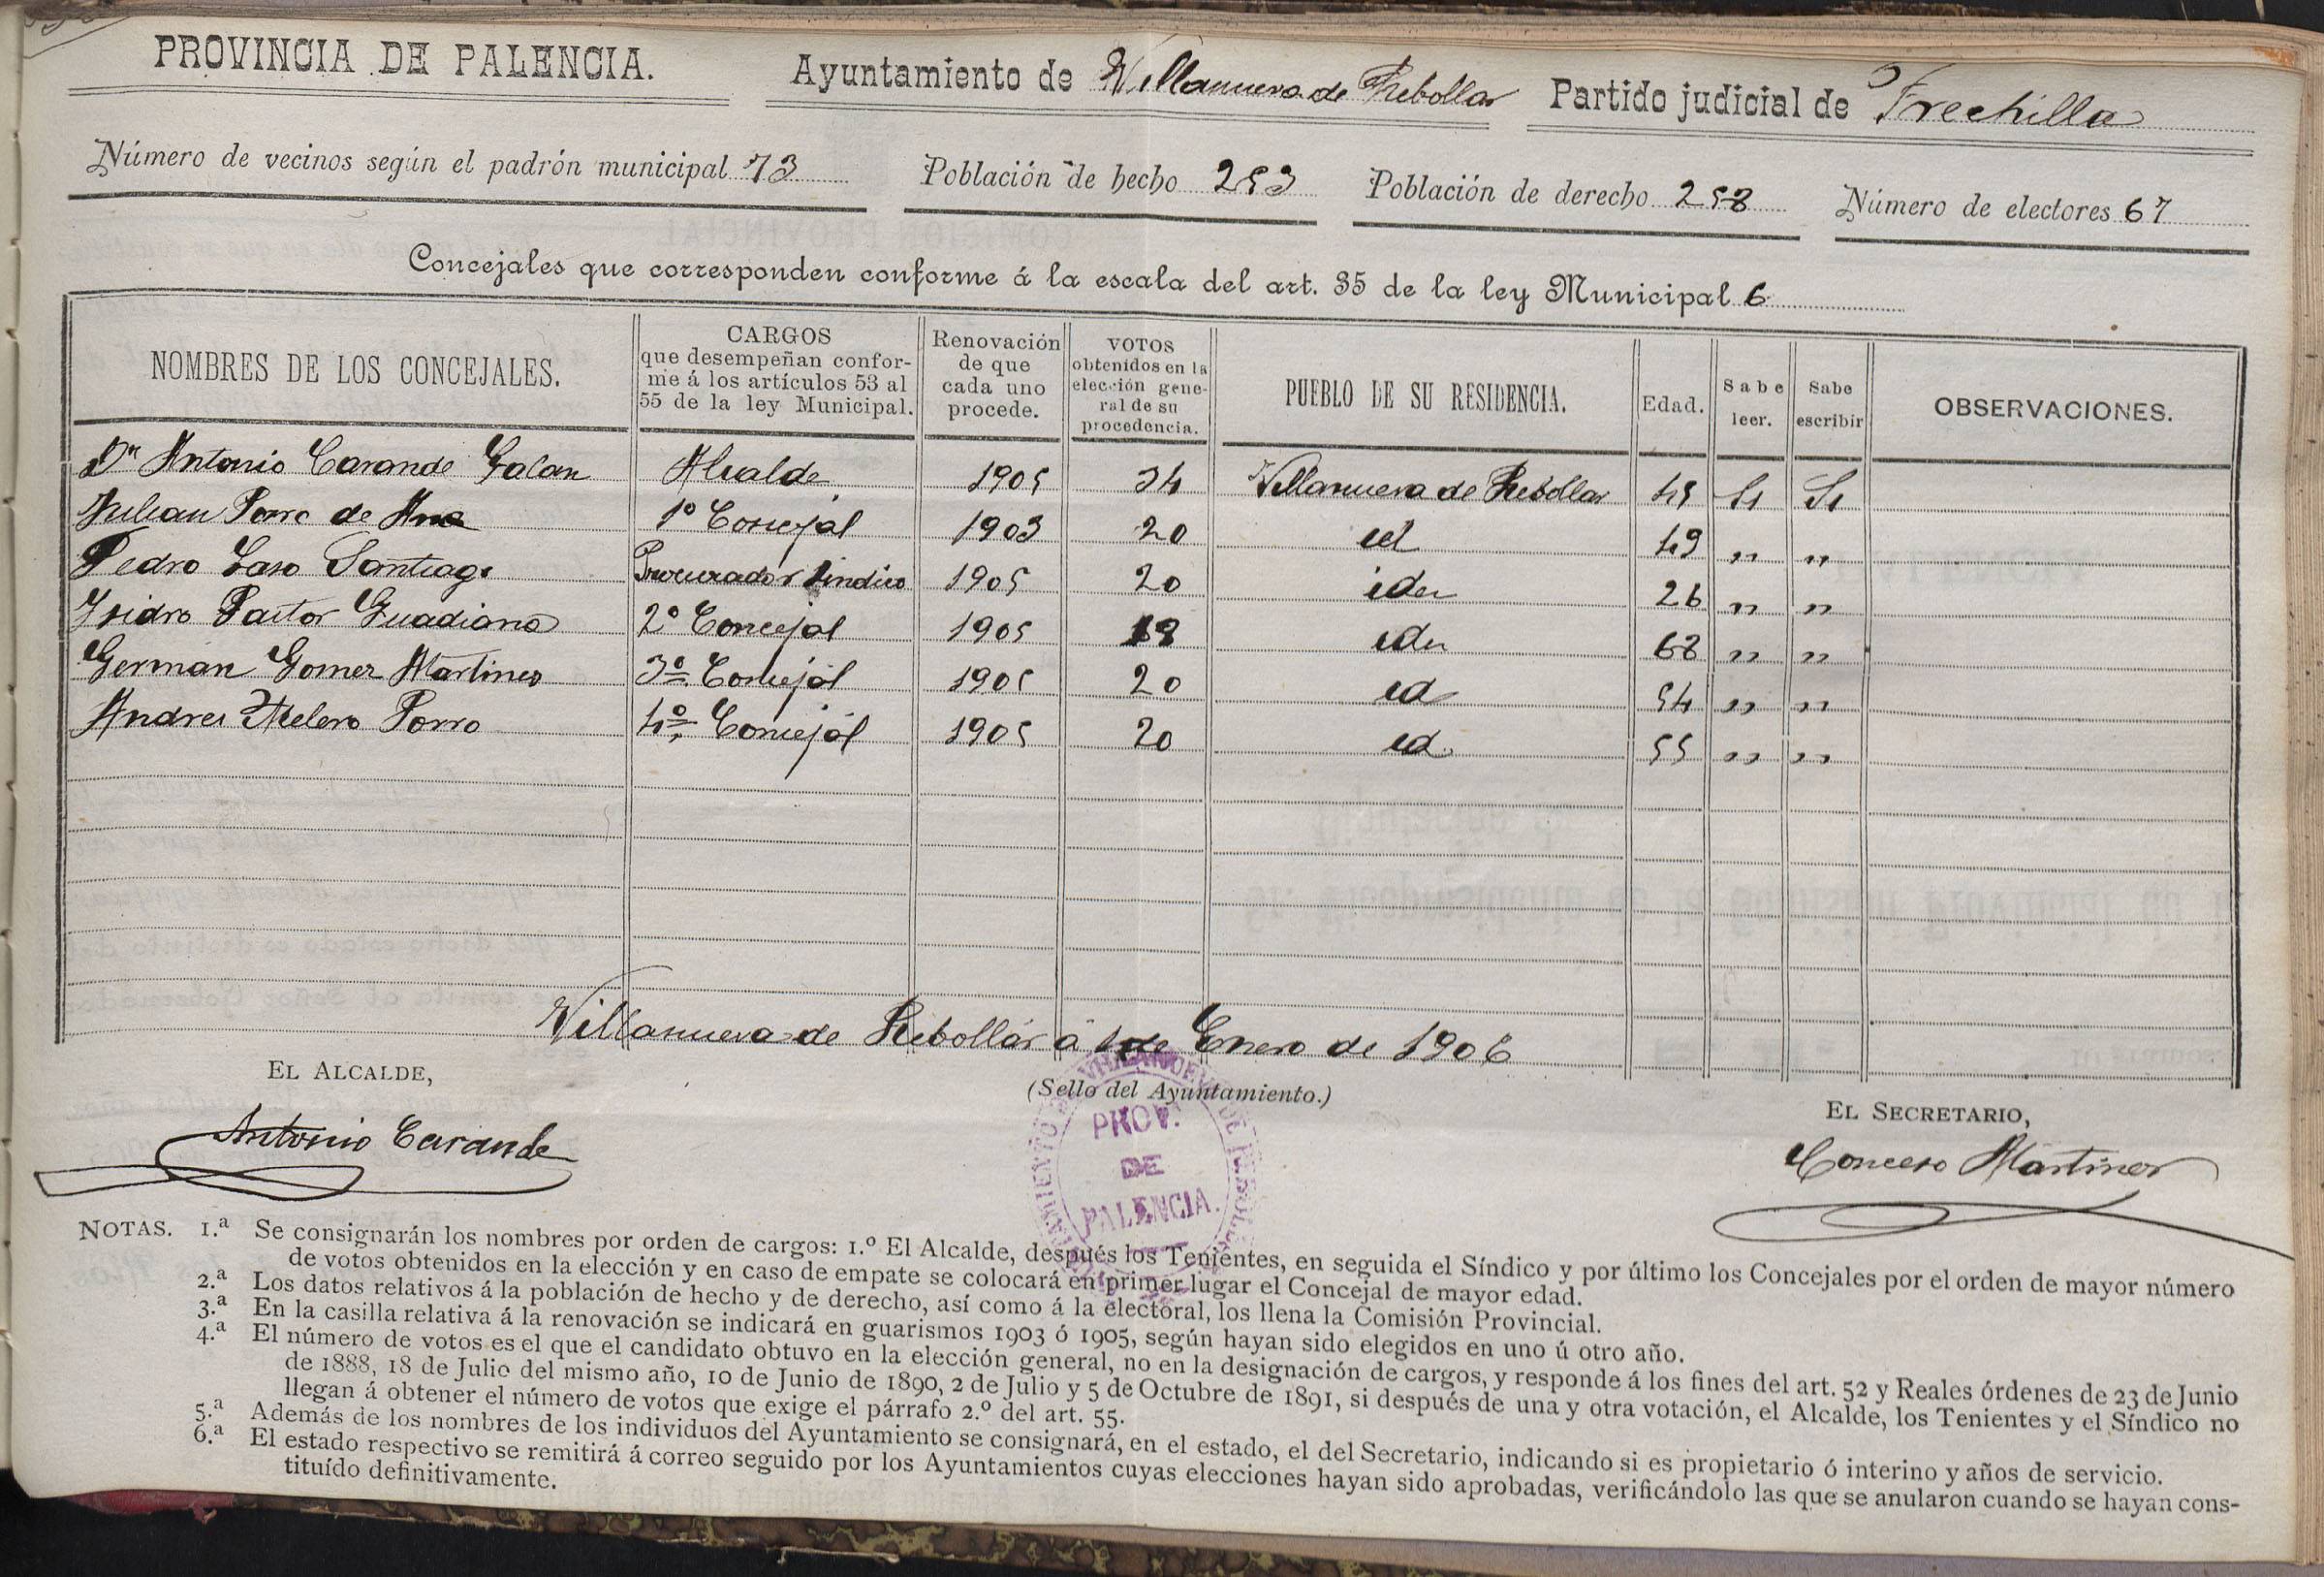 PROVINCIA DE PALENCIA. Ayuntamiento de Villanueva de Rebollar Partido judicial de Frechilla
Número de vecinos según el padrón municipal 73 Población de hecho 253 Población de derecho 258 Número de electores 67
Concejales que corresponden conforme á la escala del art. 35 de la ley Municipal 6
NOMBRES DE LOS CONCEJALES.
CARGOS
que desempeñan confor-
me á los artículos 53 al
55 de la ley Municipal.
Renovación
de que
cada uno
procede.
VOTOS
obtenidos en la
elección gene-
ral de su
procedencia.
PUEBLO DE SU RESIDENCIA.
Edad.
Sabe
leer.
Sabe
escribir
OBSERVACIONES.
Dn Antonio Carande Galan Alcalde 1905 34 Villanueva de Rebollar 45 Si Si
Julian Porro de 1º Concejal 1903 20 id 49 " "
Pedro Laso Santiago Procurador Sindico 1905 20 idem 26 " "
Isidro Pastor Guadiana 2º Concejal 1905 18 idm 68 " "
German Gomez Martinez 3º Concejal 1905 20 id 54 " "
Andres Melero Porro 4º Concejal 1905 20 id. 55 " "
Villanueva de Rebollar á 1 de Enero de 1906
EL ALCALDE,
(Sello del Ayuntamiento.)
EL SECRETARIO,
Antonio Carande
PROV.
DE
PALENCIA.
Martinez
NOTAS. 1.ª Se consignarán los nombres por orden de cargos: 1.º El Alcalde, después los Tenientes, en seguida el Síndico y por último los Concejales por el orden de mayor número
de votos obtenidos en la elección y en caso de empate se colocará en primer lugar el Concejal de mayor edad.
2.ª Los datos relativos á la población de hecho y de derecho, así como á la electoral, los llena la Comisión Provincial.
3.ª En la casilla relativa á la renovación se indicará en guarismos 1903 ó 1905, según hayan sido elegidos en uno ú otro año.
4.ª El número de votos es el que el candidato obtuvo en la elección general, no en la designación de cargos, y responde á los fines del art. 52 y Reales órdenes de 23 de Junio
de 1888, 18 de Julio del mismo año, 10 de Junio de 1890, 2 de Julio y 5 de Octubre de 1891, si después de una y otra votación, el Alcalde, los Tenientes y el Síndico no
llegan á obtener el número de votos que exige el párrafo 2.º del art. 55.
5.ª Además de los nombres de los individuos del Ayuntamiento se consignará, en el estado, el del Secretario, indicando si es propietario ó interino y años de servicio.
6.ª El estado respectivo se remitirá á correo seguido por los Ayuntamientos cuyas elecciones hayan sido aprobadas, verificándolo las que se anularon cuando se hayan cons-
tituído definitivamente.